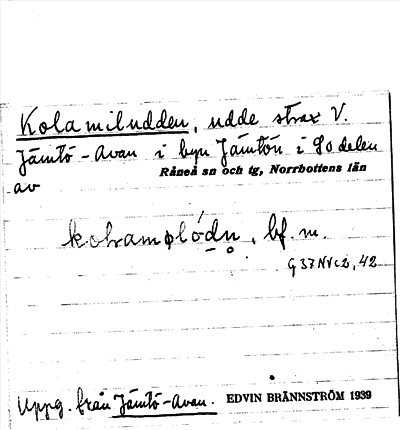 Kolamiludden, udde strax V.
Jämtö-Avan i byn Jämtön i So delen
av Råneå sn och tg, Norrbottens län
kolramɸlódn̥, bf. m.
G37NVc2, 42
Uppg. från Jämtö-Avan. EDVIN BRÄNNSTRÖM 1939